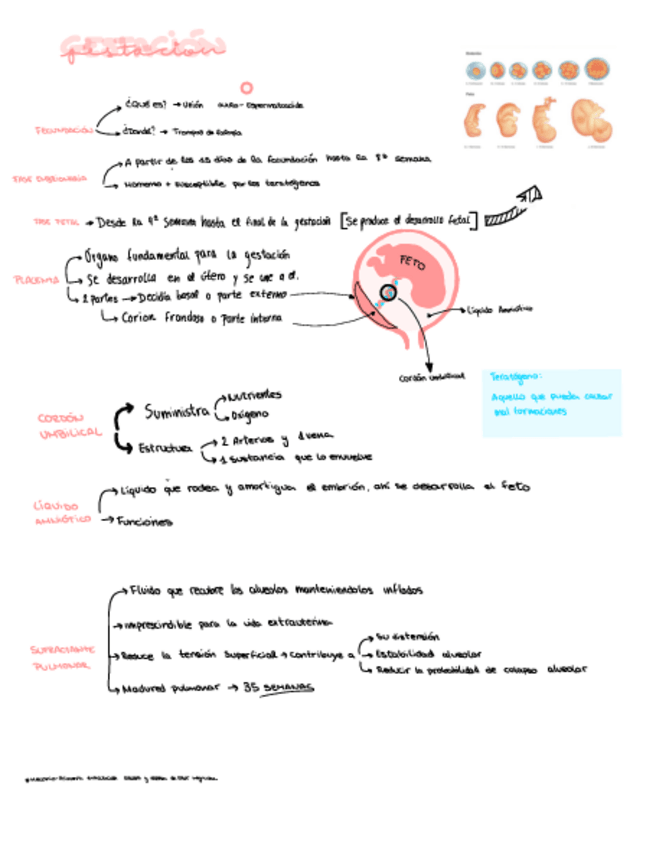 gestación
¿Qué es? → Unión
FECUNDACIÓN
¿Donde? → Trompas de Falopio
A partir de los 15 días de la fecundación hasta la 8ª semana
FASE EMBRIONARIA
Momento + susceptible por los teratógenos
FASE FETAL → Desde la 9ª semana hasta el final de la gestación [se produce el desarrollo fetal]
Órgano fundamental para la gestación
PLACENTA
Se desarrolla en el útero y se une a él.
2 partes → Decidia basal o parte externa
Corion frondoso o parte interna
FETO
Líquido Amniótico
Cordón umbilical
Teratógeno:
Aquello que pueda causar
mal formaciones
CORDÓN
UMBILICAL
Suministra
Nutrientes
Oxígeno
Estructura
2 Arterias y 1 vena
1 sustancia que lo envuelve
Líquido que rodea y amortigua el embrión, ahí se desarrolla el feto
LÍQUIDO
AMNIÓTICO
Funciones
Fluido que recubre los alveolos manteniendolos inflados
imprescindible para la vida extrauterina
SUFRACTANTE
PULMONAR
Reduce la tensión superficial → contribuye a
Su distensión
Estabilidad alveolar
Reducir la probabilidad de colapso alveolar
Madured pulmonar → 35 SEMANAS